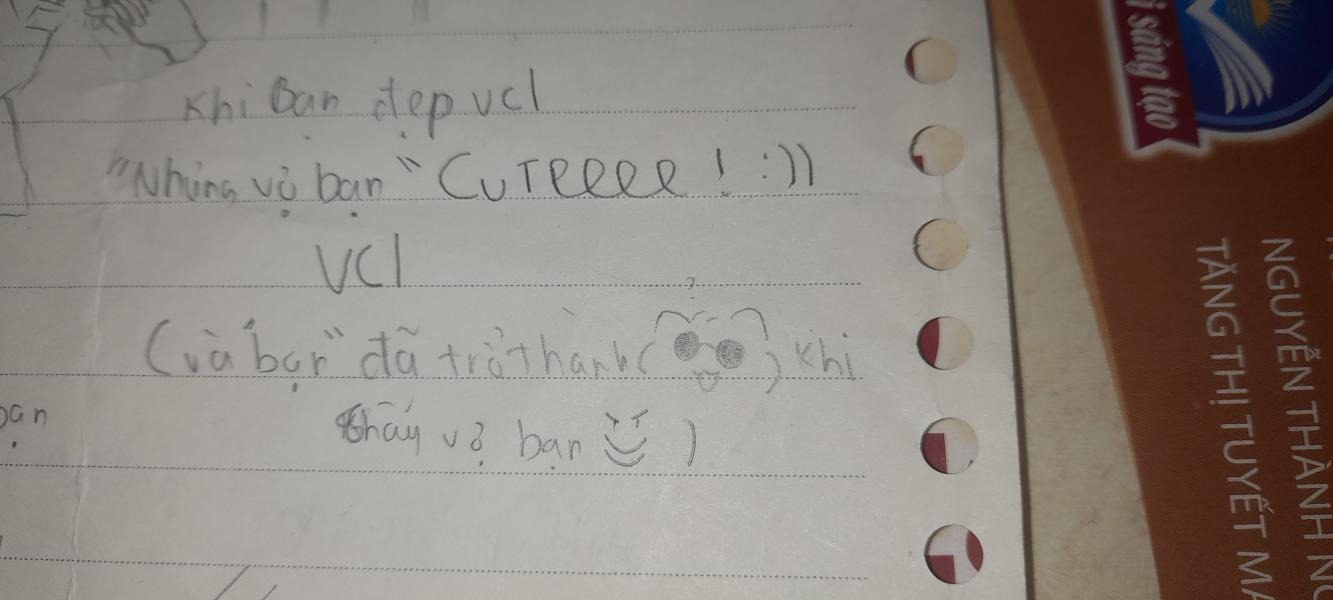 Khi bạn đẹp vcl
"Nhưng vợ bạn" CuTeeee ! :))
VCl
(và "bạn" đã trở thành ( ) khi
thấy vợ bạn )
bạn
i sáng tạo
NGUYỄN THÀNH
TĂNG THỊ TUYẾT MA